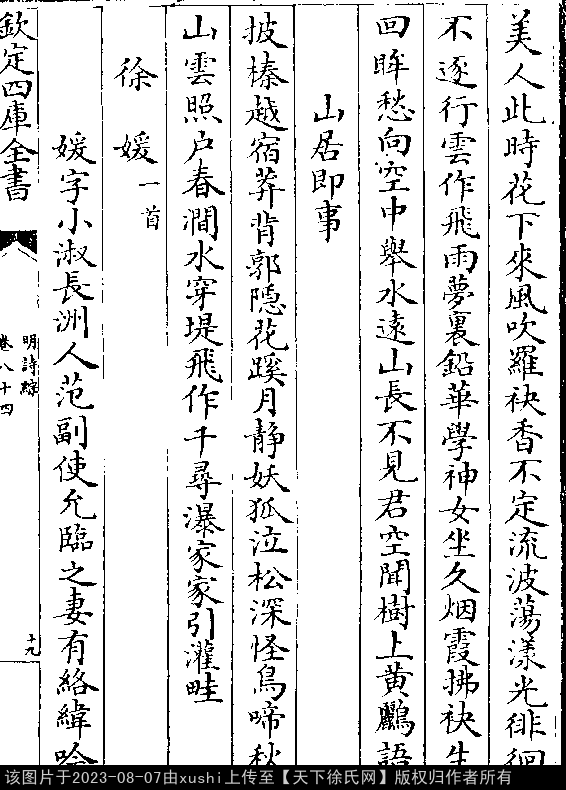 美人此時花下來風吹羅袂香不定流波蕩漾光徘徊
不逐行雲作飛雨夢裏鉛華學神女坐久烟霞拂袂生
回眸愁向空中舉水遠山長不見君空聞樹上黄鸝語
山居即事
披榛越宿莽背郭隱花蹊月静妖狐泣松深怪鳥啼秋
山雲照户春澗水穿堤飛作千尋瀑家家引灌畦
徐媛一首
媛字小淑長洲人范副使允臨之妻有絡緯吟
欽定四庫全書
明詩綜
卷八十四
十九
该图片于2023-08-07由xushi上传至【天下徐氏网】版权归作者所有